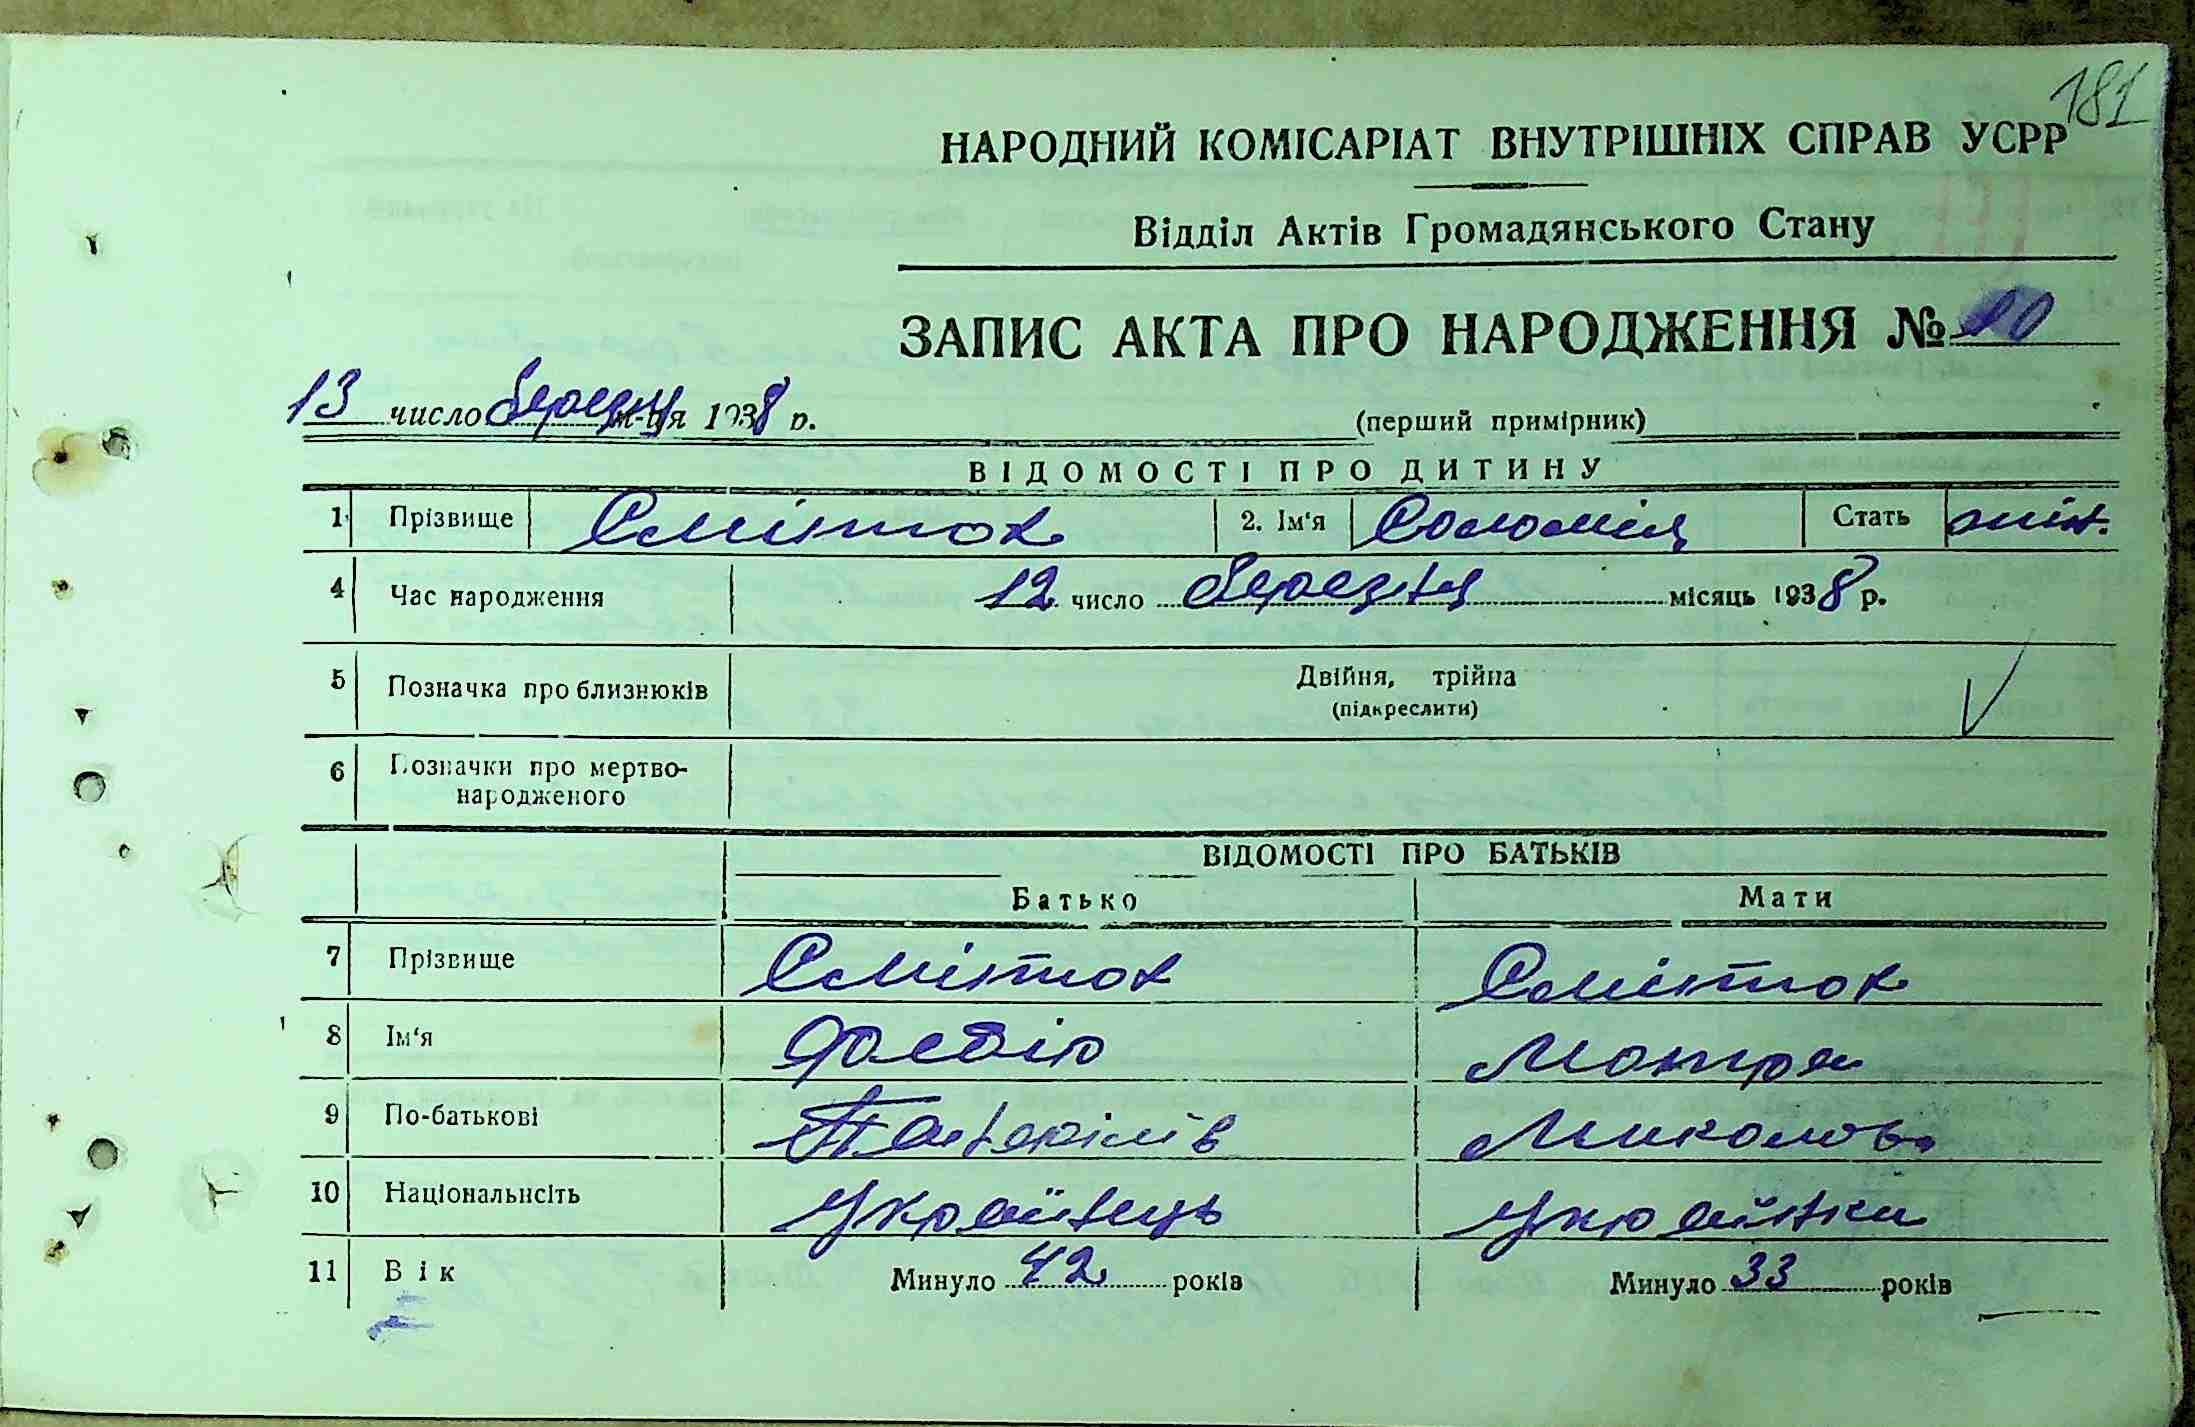 181
НАРОДНИЙ КОМІСАРІАТ ВНУТРІШНІХ СПРАВ УСРР
Відділ Актів Громадянського Стану
ЗАПИС АКТА ПРО НАРОДЖЕННЯ №
13 число березня м-ця 1938 р.
(перший примірник)
ВІДОМОСТІ ПРО ДИТИНУ
1 Прізвище Смітюх 2. Ім'я Соломія Стать жін.
4 Час народження 12 число березня місяць 1938 р.
5 Позначка про близнюків Двійня, трійна
(підкреслити)
6 Позначки про мертво-
народженого
ВІДОМОСТІ ПРО БАТЬКІВ
Батько Мати
7 Прізвище Смітюх Смітюх
8 Ім'я Мотря
9 По-батькові Миколов.
10 Національність Українець Українка
11 Вік Минуло 42 років Минуло 33 років